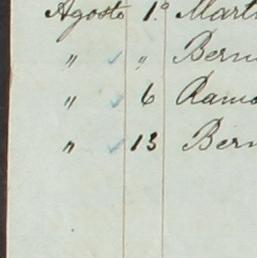 Agosto 1.º Mart
" ✓ " Bern
" ✓ 6 Ramo
" ✓ 13 Bern